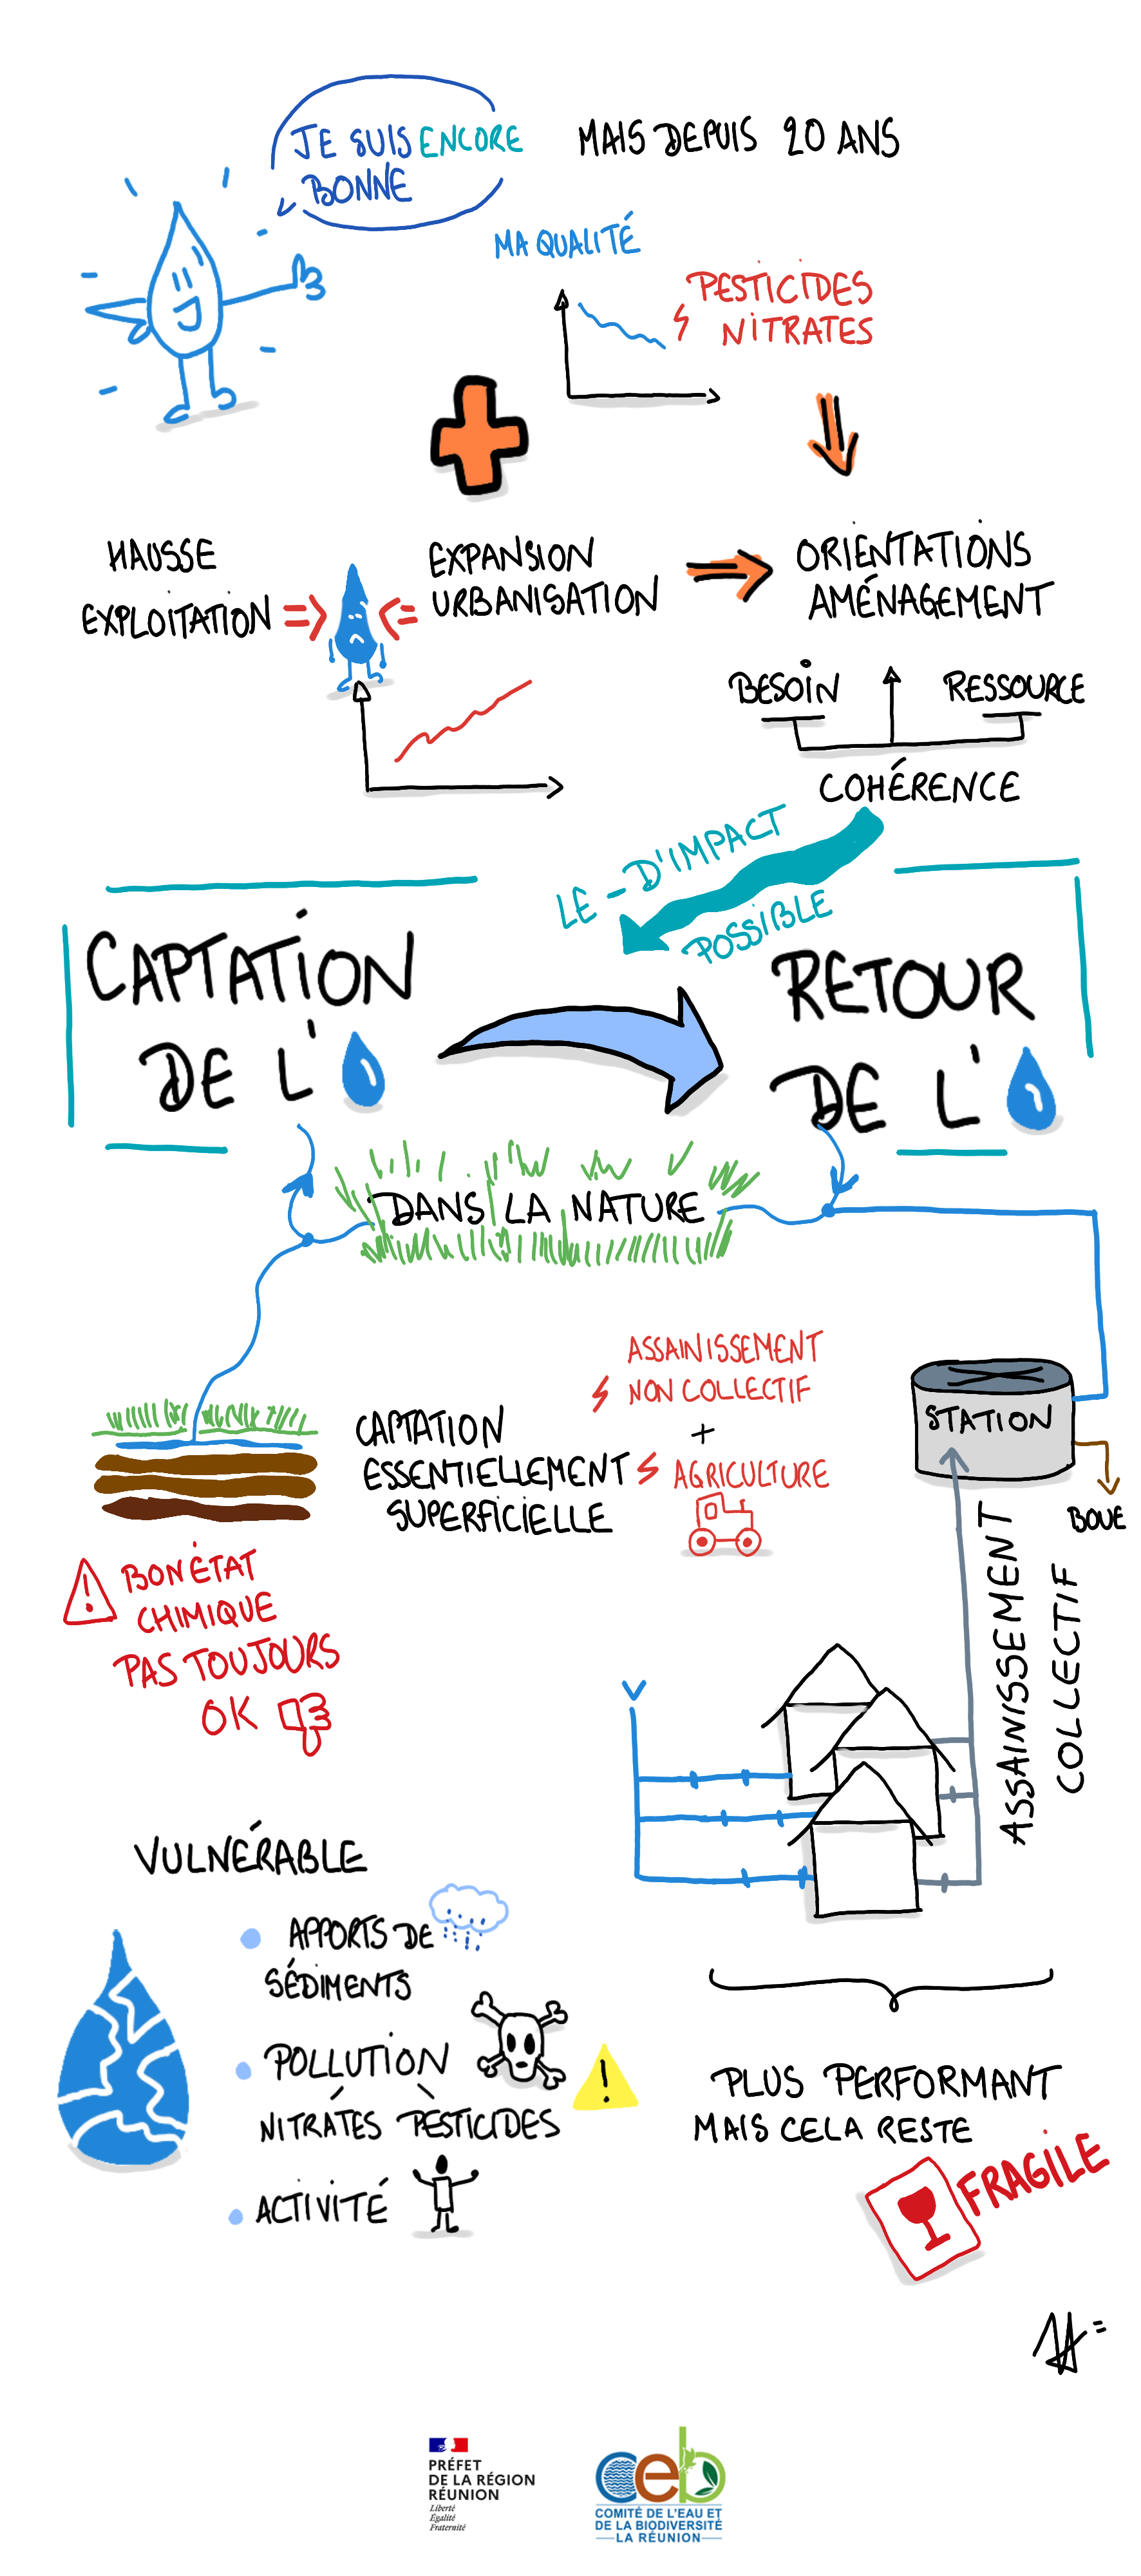 JE SUIS ENCORE
BONNE
MAIS DEPUIS 20 ANS
MA QUALITÉ
PESTICIDES
NITRATES
HAUSSE
EXPLOITATION
EXPANSION
URBANISATION
ORIENTATIONS
AMÉNAGEMENT
BESOIN
RESSOURCE
COHÉRENCE
LE - D'IMPACT
POSSIBLE
CAPTATION
DE L'
RETOUR
DE L'
DANS LA NATURE
ASSAINISSEMENT
NON COLLECTIF
+
AGRICULTURE
CAPTATION
ESSENTIELLEMENT
SUPERFICIELLE
STATION
BOUE
ASSAINISSEMENT
COLLECTIF
! BON ÉTAT
CHIMIQUE
PAS TOUJOURS
OK
VULNÉRABLE
APPORTS DE
SÉDIMENTS
POLLUTION
!
NITRATES PESTICIDES
ACTIVITÉ
PLUS PERFORMANT
MAIS CELA RESTE
FRAGILE
PRÉFET
DE LA RÉGION
RÉUNION
Liberté
Égalité
Fraternité
ceb
COMITÉ DE L'EAU ET
DE LA BIODIVERSITÉ
LA RÉUNION